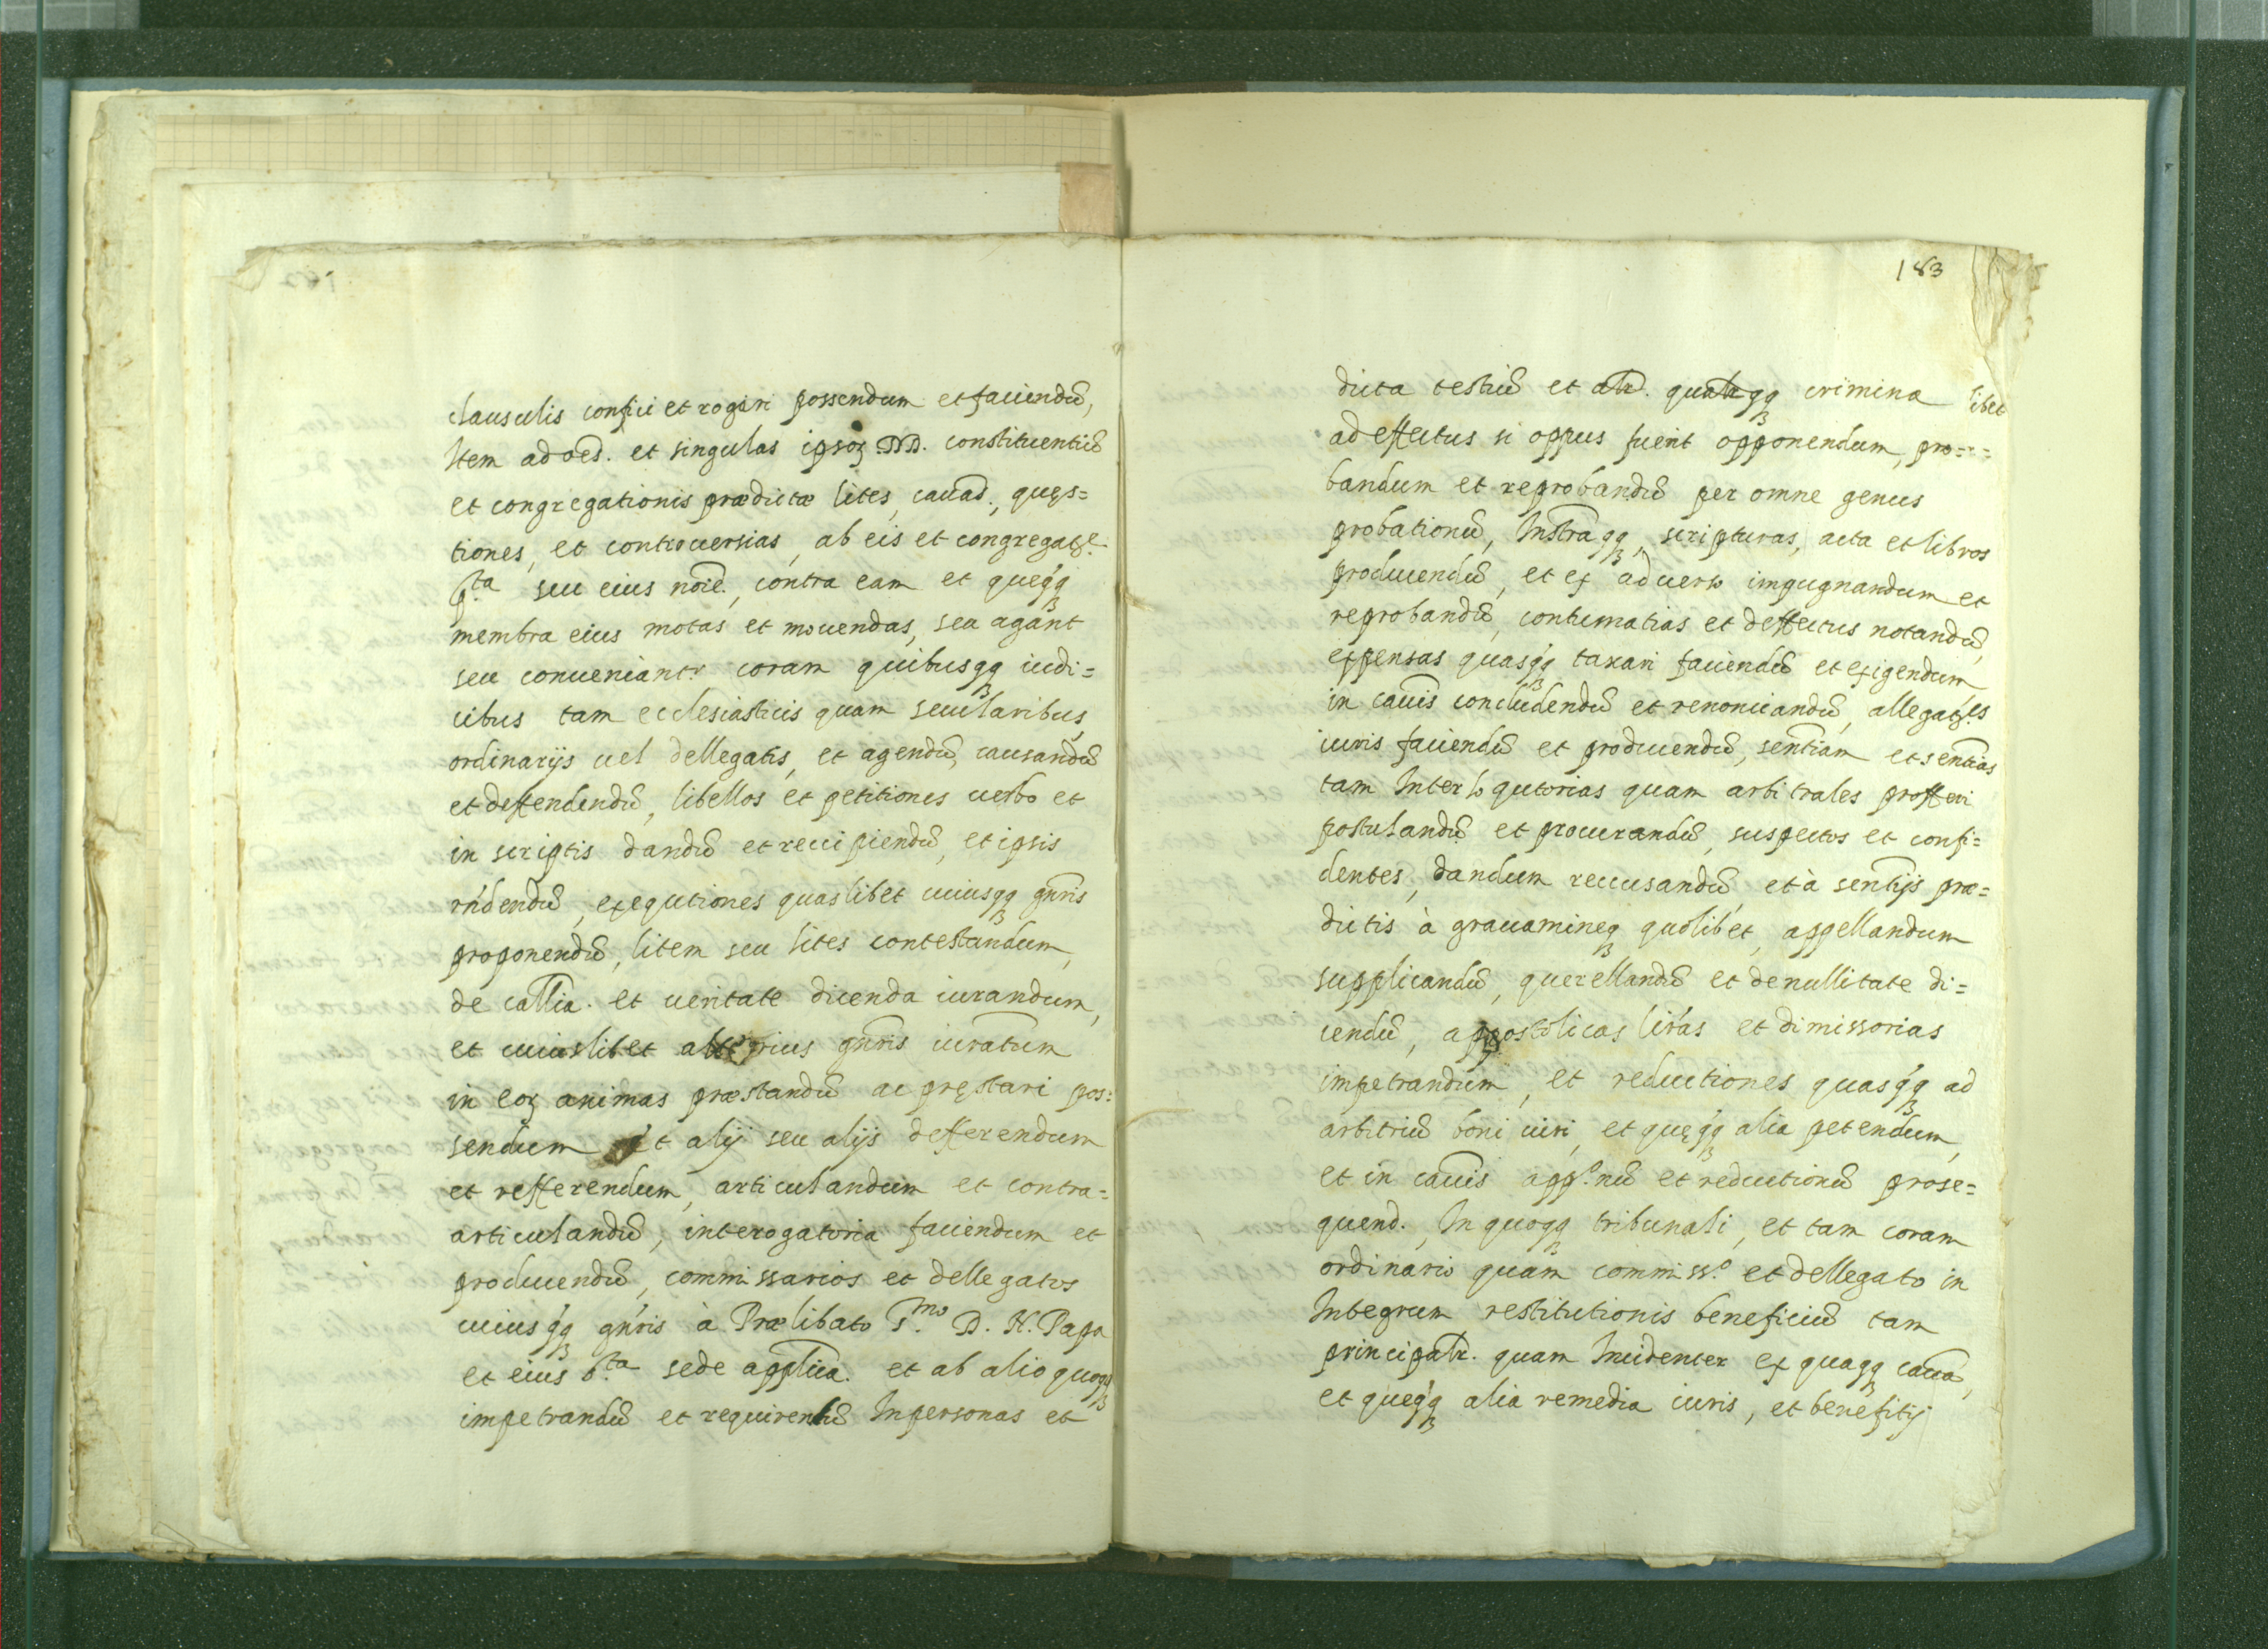 clausulis confici et rogari possendum et faciendũ,
Item ad oẽs. et singulas ipsoꝝ DD. constituentiũ
et congregationis prædictæ lites, caũas., quęs=
tiones, et controuersias, ab eis et congregatꝫe.
p.ta seu eius noĩe., contra eam et queqꝗꝫ
membra eius motas et mouendas, seu agant
seu conueniantr coram quibusqꝗꝫ iudi=
cibus tam ecclesiasticis quam secularibus,
ordinarijs uel dellegatis, et agendũ, causandũ
et deffendendũ, libellos et petitiones uerbo et
in scriptis dandũ et reccipiendũ, et ipsis
rñdendũ, exequtiones quaslibet cuiusqꝗꝫ gñris
proponendũ, litem seu lites contestandum,
de callĩa. et ueritate dicenda iurandum,
et cuiuslibet alterius gñris iuratum
in eoꝝ animas præstandũ ac pręstari pos=
sendum et alij seu alijs defferendum
et refferendum, articulandum et contra=
articulandũ, interogatoria faciendum et
producendũ, commissarios et dellegatos
cuiusqꝗꝫ gñris à Prælibato S.mo D. N. Papa
et eius s.ta sede applica. et ab alio quoqꝗꝫ
impetrandũ et requirendũ In personas et
183
dicta testiũ et alr̃. qualr̃qꝗꝫ crimina libet
ad effectus si oppus fuerit opponendum, pro=
bandum et reprobandũ per omne genus
probationũ, Instrãqꝗꝫ, scripturas, acta et libros
producendũ, et ex aduerso impugnandum et
reprobandũ, contumatias et deffectus notandũ,
expensas quasqꝗꝫ taxari faciendũ et exigendum,
in caũis concludendũ et renonciandũ, allegatꝫes
iuris faciendũ et producendũ, sentĩam et sentĩas
tam Interloqutorias quam arbitrales profferri
postulandũ et procurandũ, suspectos et confi=
dentes, dandum reccusandũ, et à sentĩjs præ=
dictis à grauamineqꝫ quolibet, appellandum
supplicandũ, querellandũ et de nullitate di=
cendũ, appostolicas lir̃as et dimissorias
impetrandum, et reductiones quasqꝗꝫ ad
arbitriũ boni uiri, et quęqꝗꝫ alia petendum,
et in caũis app.onũ et reductionũ prose=
quend., In quoqꝗꝫ tribunali, et tam coram
ordinario quam commiss.o et dellegato in
Integrum restitutionis beneficiũ tam
principalr̃. quam Incidenter ex quaqꝗꝫ caũa,
et queqꝗꝫ alia remedia iuris, et benefitij